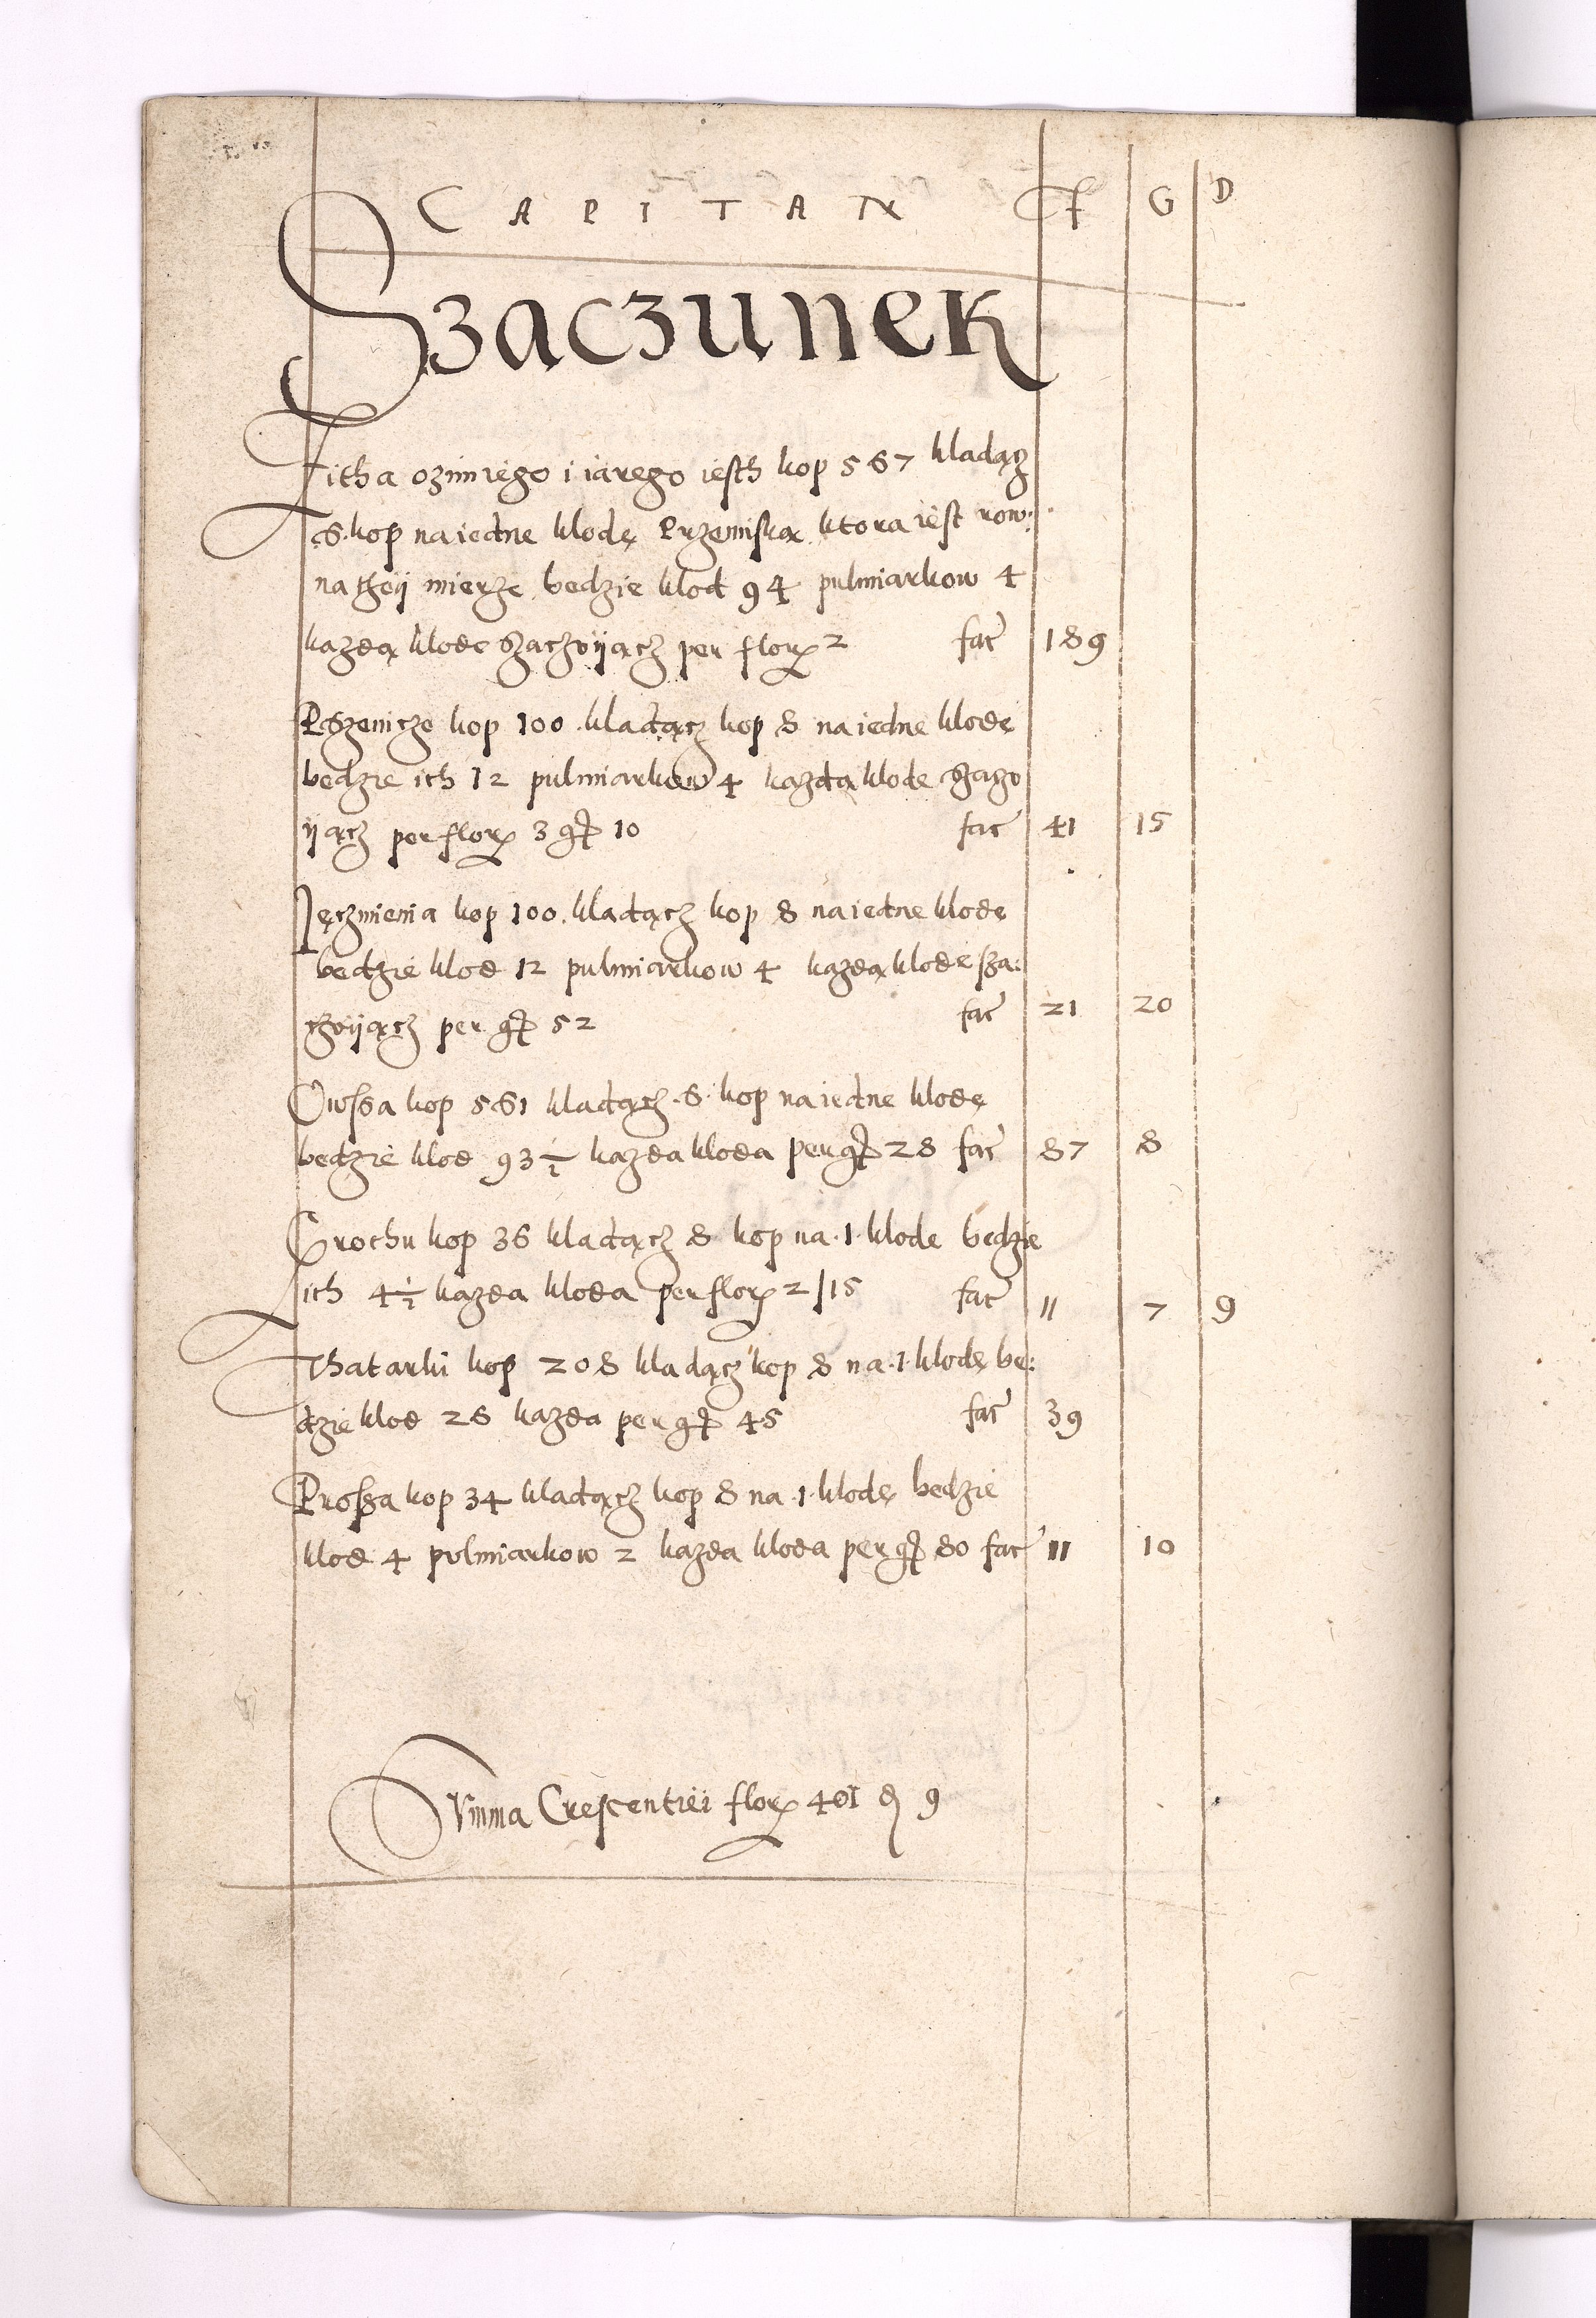 CAPITAN F G D
Szaczunek
Zitha ozimiego i iarego iesth kop 567 kladącz
6 kop na iedne klodę Przemiską ktora iest row:
na theij mierze bedzie klod 94 pulmiarkow 4
kazdą klode szaczvijącz per flor 2 fac 189
Pszenicze kop 100 kladącz kop 8 na iedne klodę
bedzie ich 12 pulmiarkow 4 kazdą klode szaczo
ijącz per flor 3 gr 10 fac 41 15
Jęczmienia kop 100 kladącz kop 8 na iedne klodę
bedzie klod 12 pulmiarkow 4 kazdą klode sza:
czvijącz per gr 52 fac 21 20
Owssa kop 561 kladącz 6 kop na iedne klodę
bedzie klod 93 1/2 kazda kloda per gr 28 fac 87 8
Grochu kop 36 kladącz 8 kop na 1 klode bedzie
ich 4 1/2 kazda kloda per flor 2/15 fac 11 7 9
Thatarki kop 208 kladącz kop 8 na 1 klodę be:
dzie klod 26 kazda per gr 45 fac 39
Prossa kop 34 kladącz kop 8 na 1 klodę bedzie
klod 4 polmiarkow 2 kazda kloda per gr 80 fac 11 10
Summa Crescentiei flor 401 d 9